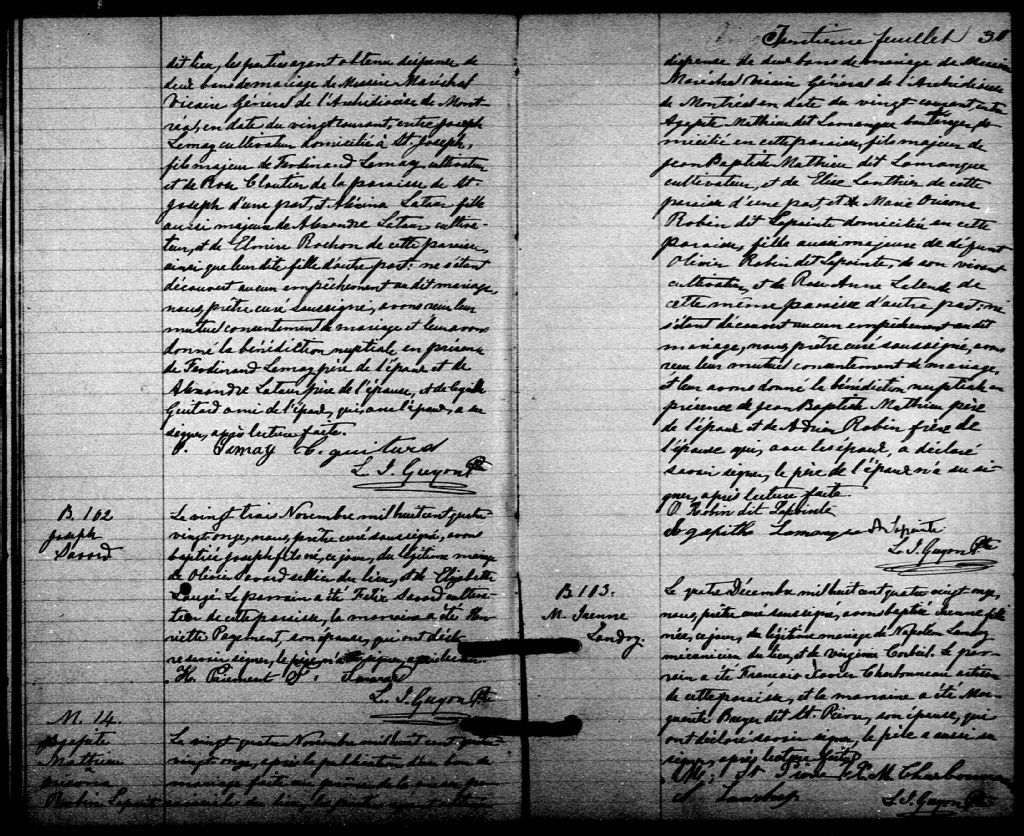 dit lieu, les parties ayant obtenu dispense de
deux bans de mariage de Messire Maréchal
Vicaire Général de l'Archidiocèse de Mont-
réal, en date du vingt courant, entre Joseph
Lemay cultivateur domicilié à St. Joseph,
fils majeur de Ferdinand Lemay cultivateur
et de Rose Cloutier de la paroisse de St.
Joseph d'une part, et Latour fille
aussi majeure de Alexandre Latour cultiva-
teur, et de Elmire Rochon de cette paroisse,
ainsi que leur dite fille d'autre part: ne s'étant
découvert aucun empêchement au dit mariage,
nous, prêtre curé soussigné, avons reçu leur
mutuel consentement de mariage et leur avons
donné la bénédiction nuptiale en présence
de Ferdinand Lemay père de l'époux et de
Alexandre Latour père de l'épouse, et de
Guitard ami de l'époux, qui, avec l'époux, a su
signer, après lecture faite.
Lemay C. guitard
L. J. Guyon Ptre
B. 102
Joseph
Savard
Le vingt trois Novembre mil huit cent quatre
vingt onze, nous, prêtre curé soussigné, avons
baptisé Joseph né, ce jour, du légitime mariage
de Olivier Savard sellier du lieu, et de Elizabeth
Laugé. Le parrain a été Felix Savard cultiva-
teur de cette paroisse, la marraine a été Hen-
riette Payment, son épouse, qui ont décla-
ré savoir signer, le père n'a pu signer, après lecture
H. Paiement F. Savard
L. J. Guyon Ptre
M. 14.
Agapite
Mathieu
Robin Lapointe
Le vingt quatre Novembre mil huit cent quatre
vingt onze, après la publication d'un ban de
mariage faite au prône de la messe
Trentième feuillet 30
dispense de deux bans de mariage de Messire
Maréchal Vicaire Général de l'Archidiocèse
de Montréal en date du vingt courant, entre
Agapite Mathieu dit Lamangue do-
micilié en cette paroisse, fils majeur de
Jean Baptiste Mathieu dit Lamangue
cultivateur, et de Elise Lanthier de cette
paroisse d'une part, et de Marie
Robin dit Lapointe domiciliée en cette
paroisse, fille aussi majeure de défunt
Olivier Robin dit Lapointe, de son vivant
cultivateur, et de Rose Anne Lalande de
cette même paroisse d'autre part: ne
s'étant découvert aucun empêchement au dit
mariage, nous, prêtre curé soussigné, avons
reçu leur mutuel consentement de mariage,
et leur avons donné la bénédiction nuptiale en
présence de Jean Baptiste Mathieu père
de l'époux et de Adrien Robin frère de
l'épouse qui, avec les époux, a déclaré
savoir signer, le père de l'époux n'a su si-
gner, après lecture faite.
O. Robin dit Lapointe
Agapithe Lamangue Ad. Lapointe
L. J. Guyon Ptre
B 103.
M. Jeanne
Landry.
Le quatre Décembre mil huit cent quatre vingt onze,
nous, prêtre curé soussigné, avons baptisé Jeanne fille
née, ce jour, du légitime mariage de Napoléon Landry
mécanicien du lieu, et de Virginie Corbeil. Le par-
rain a été François Xavier Charbonneau
de cette paroisse, et la marraine a été Mar-
guerite Berger dit St. Pierre, son épouse, qui
ont déclaré savoir signer, le père a aussi su
signer, après lecture faite.
St Pierre F. X. Charbonneau
Landry
L. J. Guyon Ptre